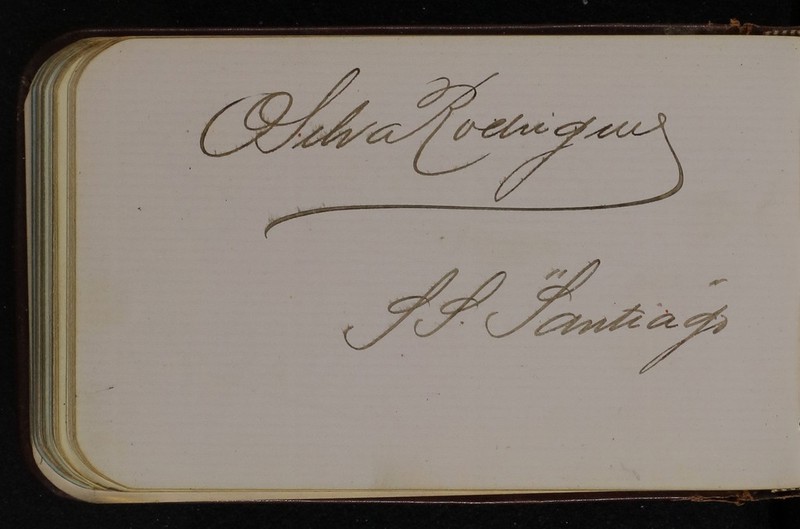 O Silva Rodrigues
S S. "Santiago"